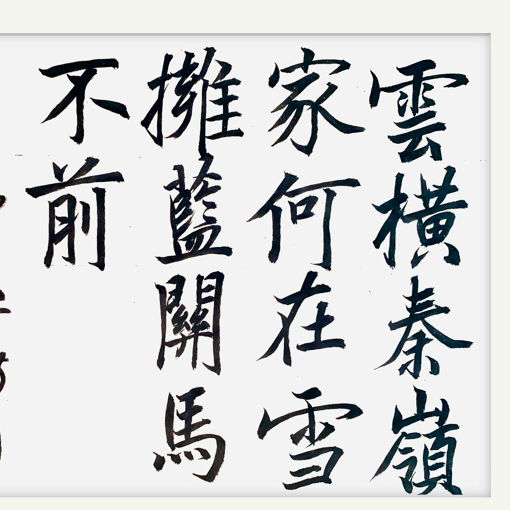 雲橫秦嶺
家何在雪
擁藍關馬
不前